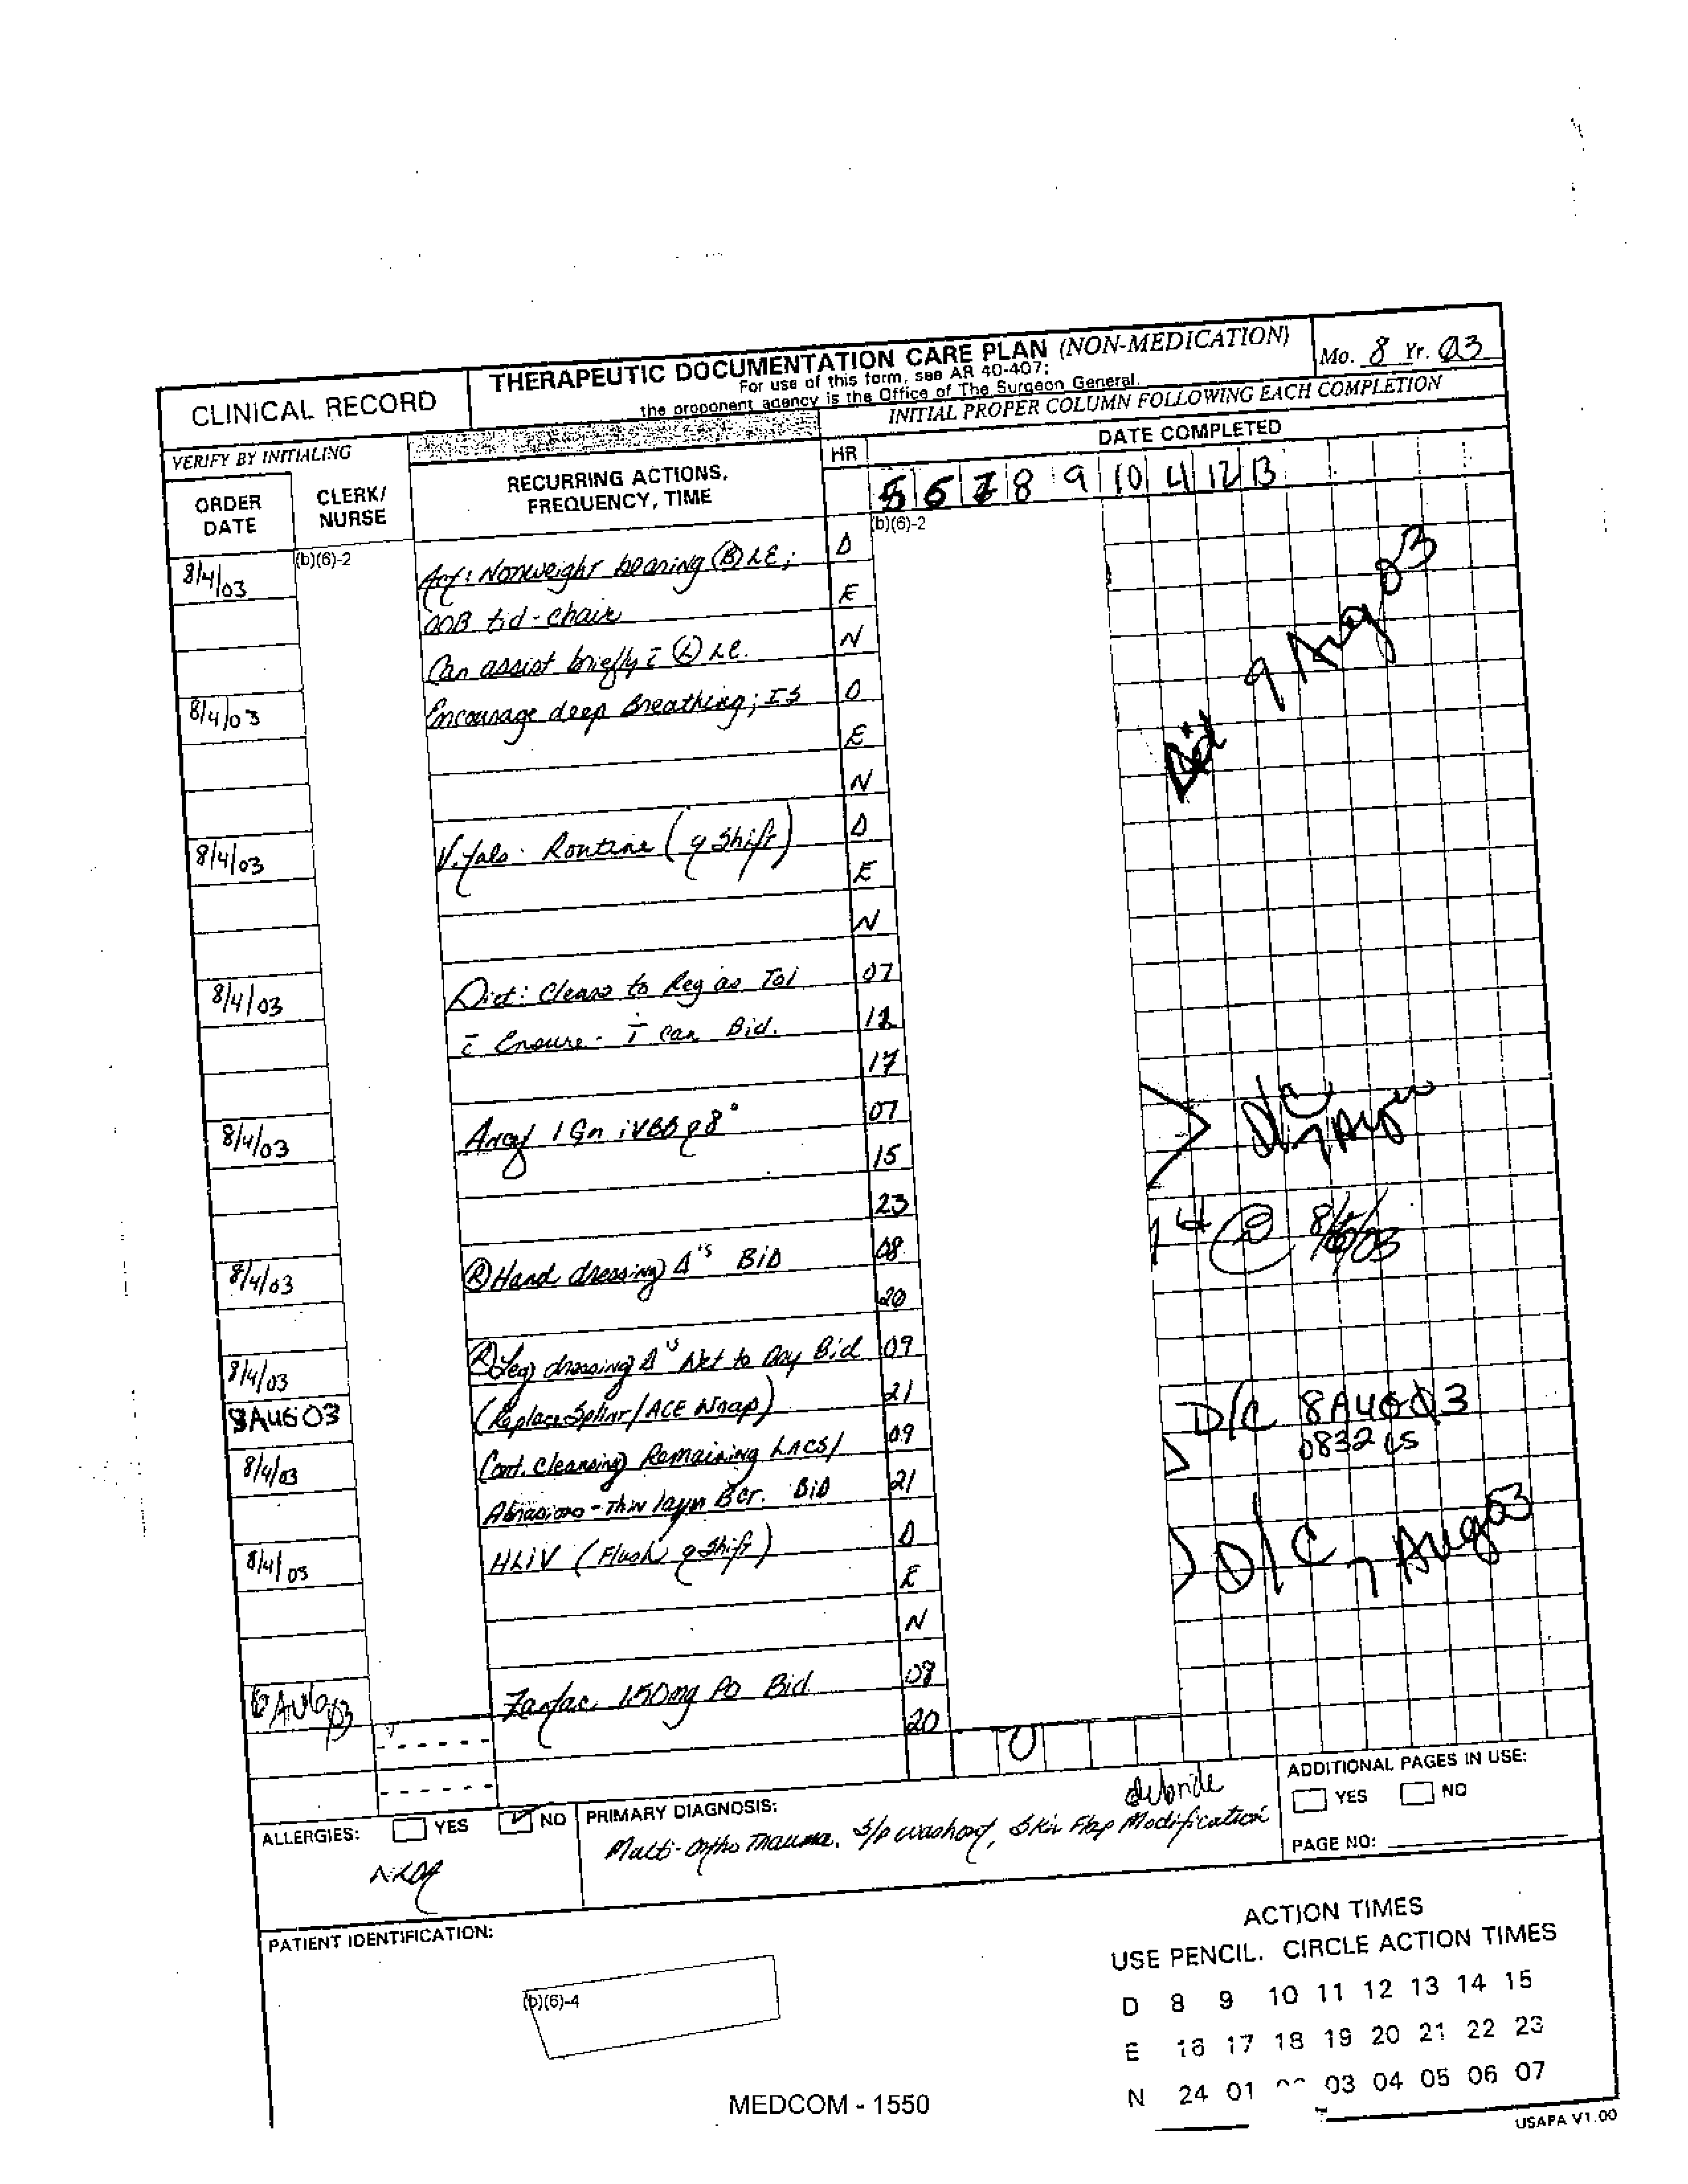 CLINICAL RECORD
THERAPEUTIC DOCUMENTATION CARE PLAN (NON-MEDICATION)
For use of this form, see AR 40-407;
the proponent agency is the Office of The Surgeon General.
Mo. 8 Yr. 03
VERIFY BY INITIALING
INITIAL PROPER COLUMN FOLLOWING EACH COMPLETION
ORDER DATE
CLERK/ NURSE
RECURRING ACTIONS, FREQUENCY, TIME
HR
DATE COMPLETED
5 6 7 8 9 10 11 12 13
(b)(6)-2
(b)(6)-2
8/4/03 Act: Nonweight bearing (B) LE; D
OOB tid - chair E
Can assist briefly c̄ (L) LE. N
9 Aug 03
8/4/03 Encourage deep Breathing; IS D
E
N
8/4/03 Vitals - Routine (q shift) D
E
N
8/4/03 Diet: Clears to Reg as Tol 07
c̄ Ensure - T can Bid. 12
17
8/4/03 Ancef 1 Gm iVBB q 8° 07
15
23
D/C 7 Aug
8/4/03 (R) Hand dressing Δ's BiD 08
20
8/4/03 (R) Leg dressing Δ's Wet to Dry Bid 09
8AUG03 (Replace Splint/ACE Wrap) 21
D/C 8AUG03
0832
8/4/03 Cont. cleansing Remaining LACS/ 09
Abrasions - Thin layer BID 21
8/4/03 HLIV (Flush q shift) D
E
N
D/C 7 Aug 03
6 AUG 03 Zantac 150mg PO Bid 08
20
0
ALLERGIES: YES NO
NKDA
PRIMARY DIAGNOSIS:
debride
Multi-Ortho Trauma. S/p washout, Skin Flap Modification
ADDITIONAL PAGES IN USE:
YES NO
PAGE NO:
PATIENT IDENTIFICATION:
(b)(6)-4
ACTION TIMES
USE PENCIL. CIRCLE ACTION TIMES
D 8 9 10 11 12 13 14 15
E 16 17 18 19 20 21 22 23
N 24 01 03 04 05 06 07
MEDCOM - 1550
USAPA V1.00